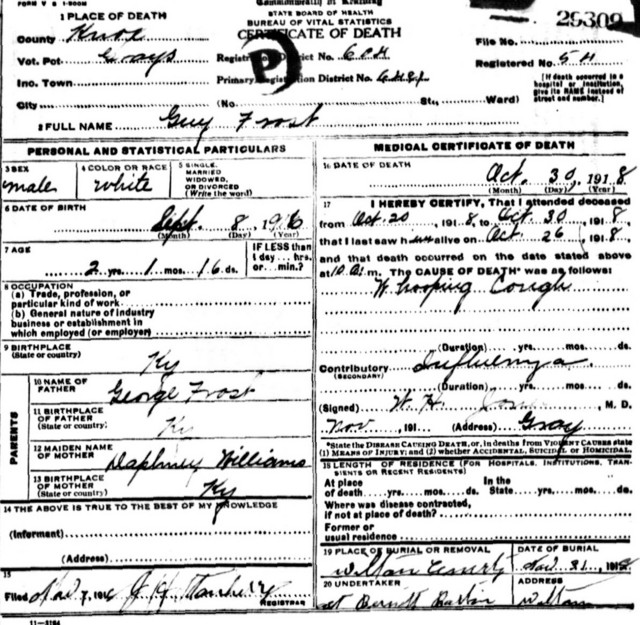 FORM V S 1-500M
Commonwealth of Kentucky
STATE BOARD OF HEALTH
BUREAU OF VITAL STATISTICS
CERTIFICATE OF DEATH
1 PLACE OF DEATH
County Knox
Vot. Pct Grays
Inc. Town
City
Registration District No.
Primary Registration District No.
(No. St., Ward)
File No. 29309
Registered No. 54
[If death occurred in a hospital or institution, give its NAME instead of street and number.]
2 FULL NAME Guy Frost
PERSONAL AND STATISTICAL PARTICULARS
3 SEX male
4 COLOR OR RACE white
5 SINGLE, MARRIED WIDOWED, OR DIVORCED (Write the word)
6 DATE OF BIRTH Sept. 8, 1916
(Month) (Day) (Year)
7 AGE 2 yrs. 1 mos. 16 ds.
IF LESS than 1 day... hrs. or... min.?
8 OCCUPATION
(a) Trade, profession, or particular kind of work
(b) General nature of industry business or establishment in which employed (or employer)
9 BIRTHPLACE (State or country) Ky
PARENTS
10 NAME OF FATHER George Frost
11 BIRTHPLACE OF FATHER (State or country) Ky
12 MAIDEN NAME OF MOTHER Daphney Williams
13 BIRTHPLACE OF MOTHER (State or country) Ky
14 THE ABOVE IS TRUE TO THE BEST OF MY KNOWLEDGE
(Informant)
(Address)
15
Filed 7, 191
REGISTRAR
11-3184
MEDICAL CERTIFICATE OF DEATH
16 DATE OF DEATH Oct. 30, 1918
(Month) (Day) (Year)
17 I HEREBY CERTIFY, That I attended deceased
from Oct. 20, 1918, to Oct 30, 1918,
that I last saw him alive on Oct 26, 1918,
and that death occurred on the date stated above
at 10 a.m. The CAUSE OF DEATH* was as follows:
Whooping Cough
(Duration) yrs. mos. ds.
Contributory Influenza
(SECONDARY)
(Duration) yrs. mos. ds.
(Signed) W. H. , M. D.
Nov , 191 (Address) Gray
*State the DISEASE CAUSING DEATH, or, in deaths from VIOLENT CAUSES state (1) MEANS OF INJURY; and (2) whether ACCIDENTAL, SUICIDAL OR HOMICIDAL.
18 LENGTH OF RESIDENCE (FOR HOSPITALS, INSTITUTIONS, TRANSIENTS OR RECENT RESIDENTS)
At place of death yrs. mos. ds. In the State yrs. mos. ds.
Where was disease contracted, if not at place of death?
Former or usual residence
19 PLACE OF BURIAL OR REMOVAL
DATE OF BURIAL
20 UNDERTAKER
ADDRESS